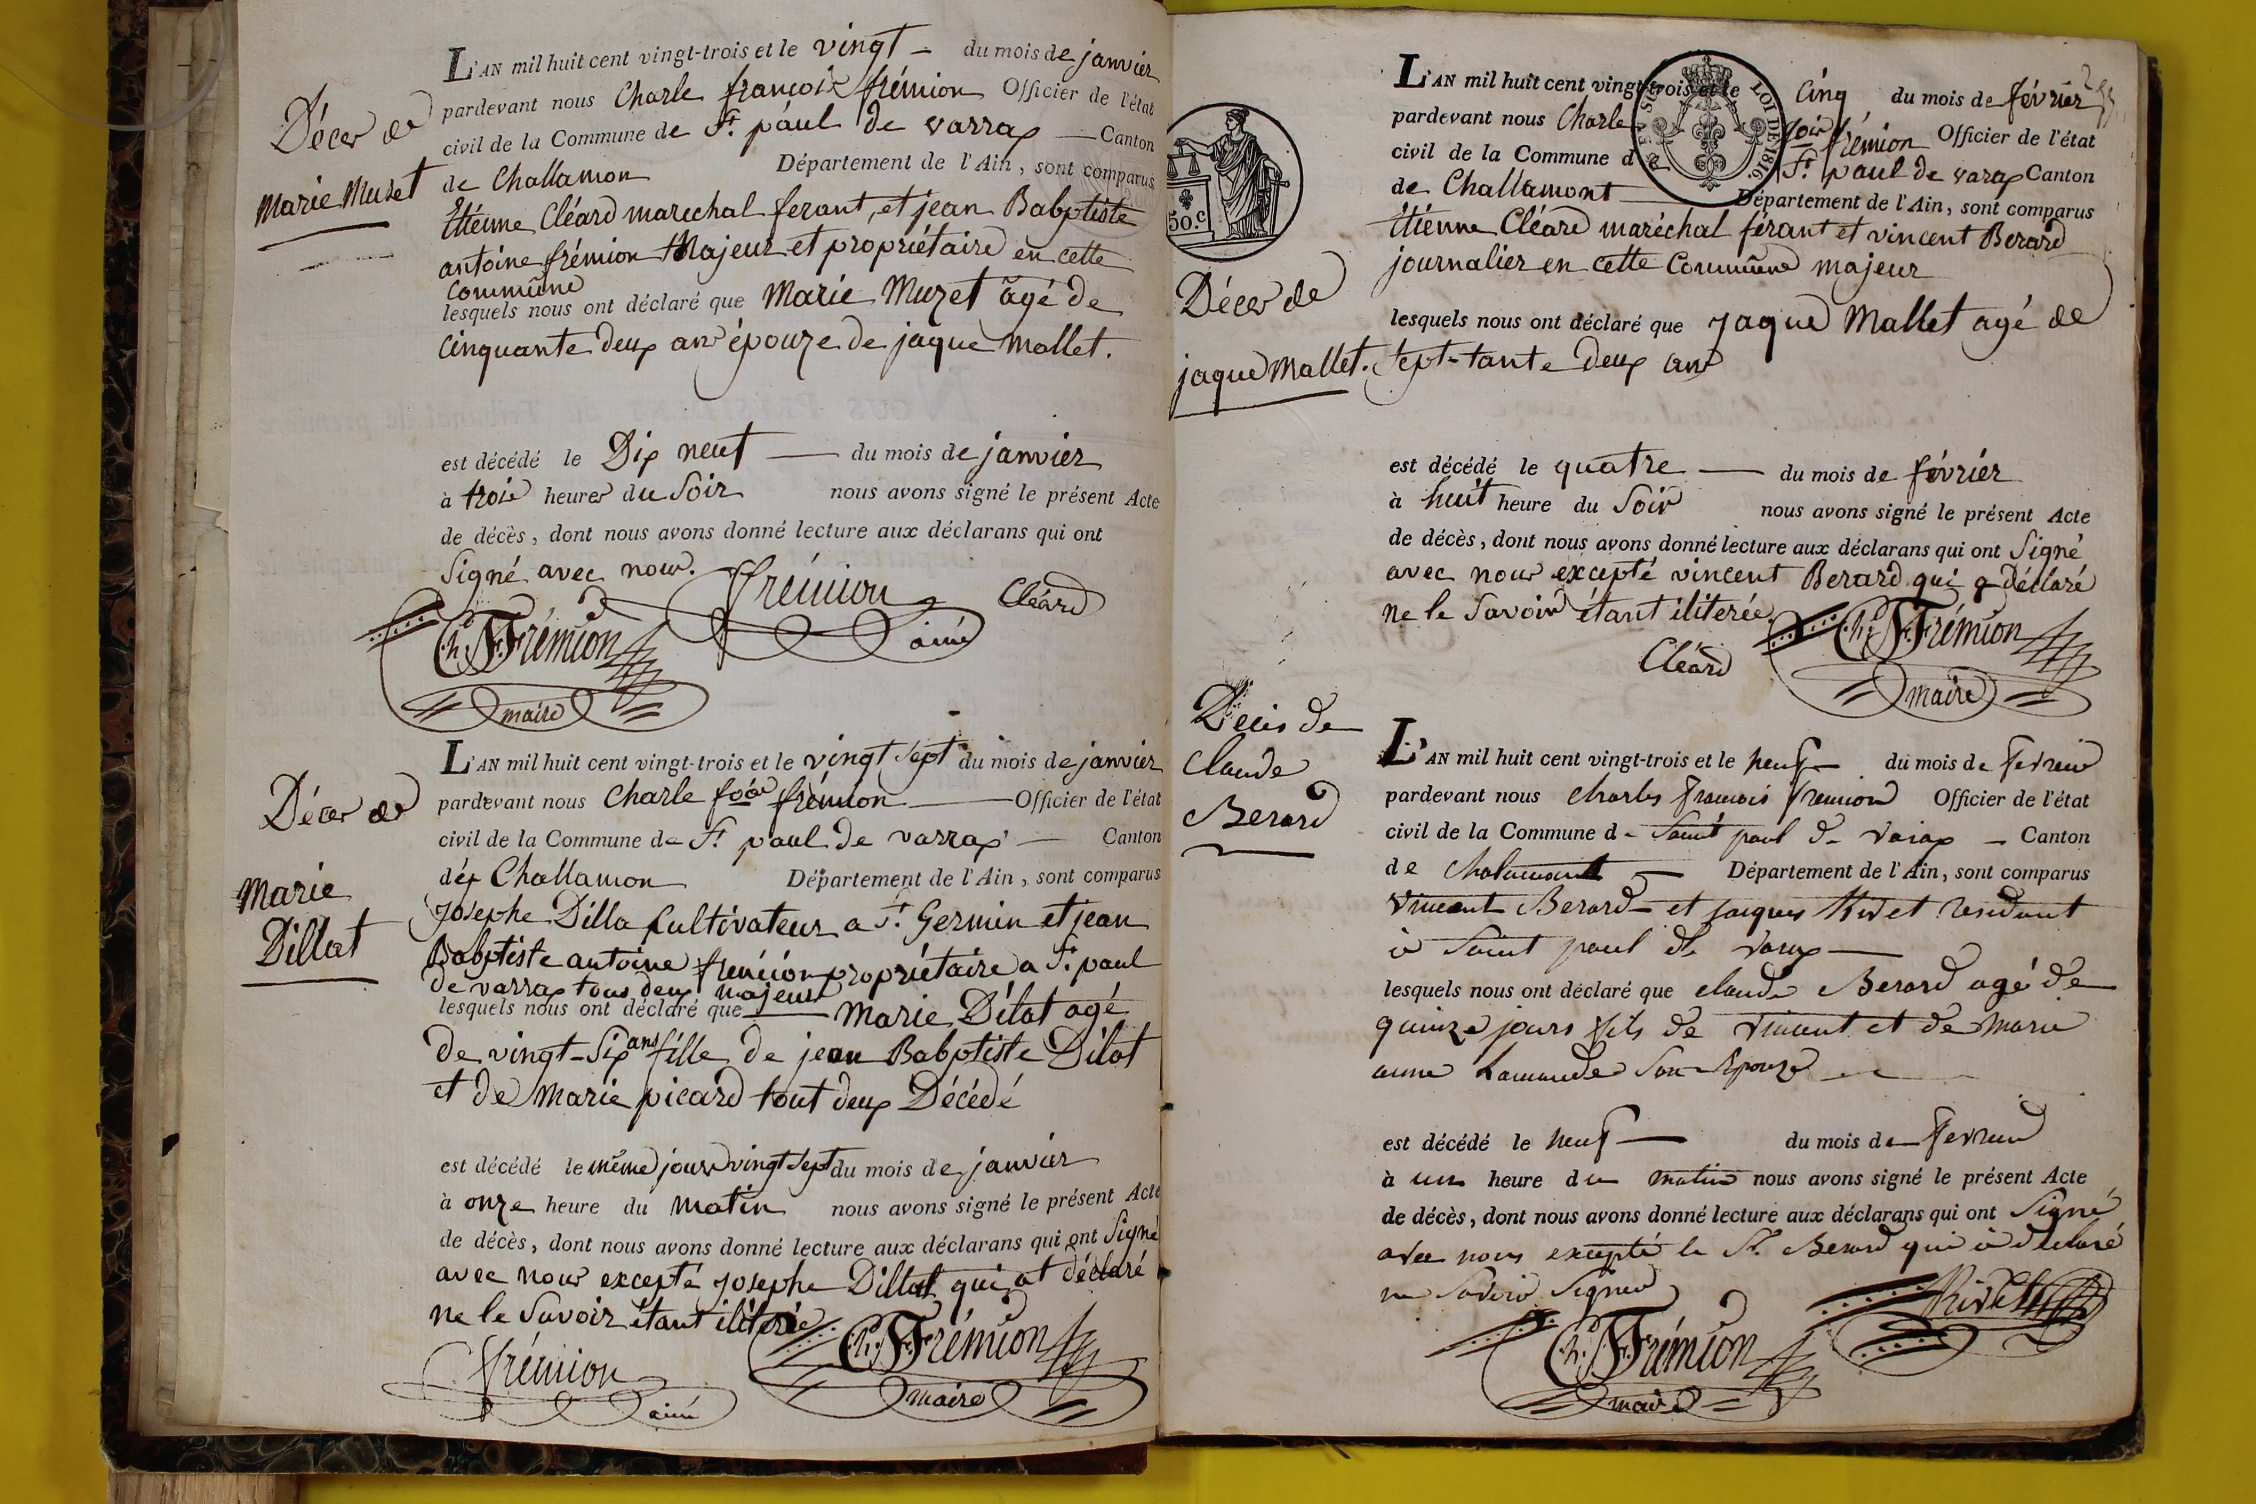 Déces de
Marie Muzet
L'AN mil huit cent vingt-trois et le vingt du mois de janvier
pardevant nous Charle françois frémion Officier de l'état
civil de la Commune de St. paul de varrax Canton
de Challamon Département de l'Ain, sont comparus
Etienne Cléard marechal ferant, et jean Babptiste
antoine frémion Majeur et propriétaire en cette
commune
lesquels nous ont déclaré que Marie Muzet agé de
cinquante deux ans épouze de jaque mallet.
est décédé le Dix neuf du mois de janvier
à trois heures du soir nous avons signé le présent Acte
de décès, dont nous avons donné lecture aux déclarans qui ont
Signé avec nous. frémion Cléard
ainé
Ch. F. Frémion
maire
Déces de
Marie
Dillat
L'AN mil huit cent vingt-trois et le vingt sept du mois de janvier
pardevant nous Charle frémion Officier de l'état
civil de la Commune de St. paul de varrax Canton
de Challamon Département de l'Ain, sont comparus
Josephe Dilla Cultivateur a St. Germin et jean
Babptiste antoine fremion propriétaire a St. paul
de varrax tous deux majeur
lesquels nous ont déclaré que Marie Dilat agé
de vingt-six ans fille de jean Babptiste Dilat
et de Marie picard tout deux Décédé
est décédé le même jour vingt sept du mois de janvier
à onze heure du matin nous avons signé le présent Acte
de décès, dont nous avons donné lecture aux déclarans qui ont Signé
avec nous excepté Josephe Dillat qui at déclaré
ne le Savoir étant iliterée
frémion ainé
Ch. F. Frémion
maire
50.c
LOI DE 1816.
Déces de
jaque Mallet.
L'AN mil huit cent vingt-trois et le cinq du mois de février
pardevant nous Charle frémion Officier de l'état
civil de la Commune d St. paul de varax Canton
de Challamont Département de l'Ain, sont comparus
Etienne Cléard maréchal férant et vincent Berard
journalier en cette Commune majeur
lesquels nous ont déclaré que Jaque Mallet agé de
Sept-tante deux ans
est décédé le quatre du mois de février
à huit heure du Soir nous avons signé le présent Acte
de décès, dont nous avons donné lecture aux déclarans qui ont Signé
avec nous excepté vincent Berard qui a déclaré
ne le Savoir étant iliterée
Cléard
Ch. F. Frémion
maire
Décès de
claude
Berard
L'AN mil huit cent vingt-trois et le neuf du mois de fevrier
pardevant nous Charles François fremion Officier de l'état
civil de la Commune de Saint paul de varax Canton
de Chalamont Département de l'Ain, sont comparus
Vincent Berard et jacques Rivet residant
à Saint paul de varax
lesquels nous ont déclaré que claude Berard agé de
quinze jours fils de vincent et de marie
anne Son Epouze
est décédé le neuf du mois de fevrier
à un heure du matin nous avons signé le présent Acte
de décès, dont nous avons donné lecture aux déclarans qui ont Signé
avec nous excepté le Sr. Berard qui à déclaré
ne Savoir Signer
Rivet
Ch. F. Frémion
maire